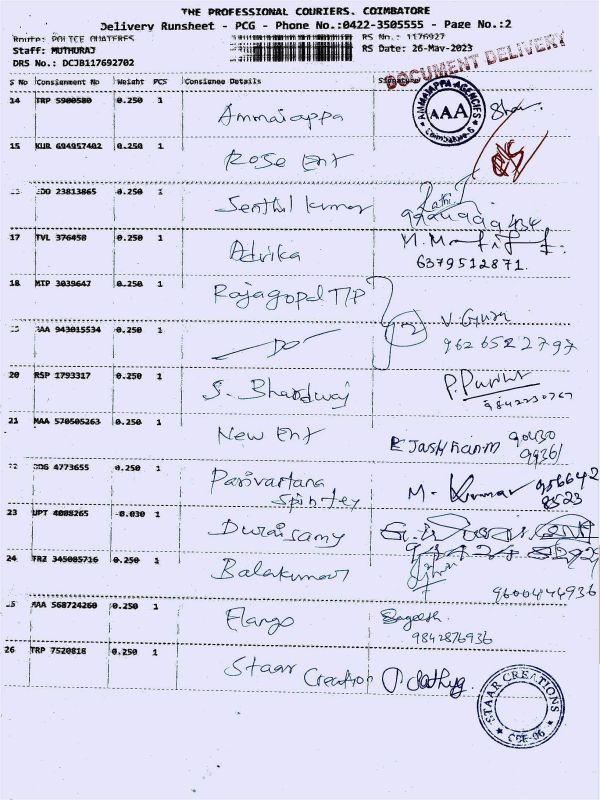 THE PROFESSIONAL COURIERS, COIMBATORE
Delivery Runsheet - PCG - Phone No.:0422-3505555 - Page No.:2
Route: POLICE QUATERES RS No.: 1176927
Staff: MUTHURAJ RS Date: 26-May-2023
DRS No.: DCJB117692702
DOCUMENT DELIVERY
S No Consignment No Weight PCS Consignee Details Signature
14 TRP 5900580 0.250 1 Ammaiappa
AMMAIAPPA AGENCIES AAA Coimbatore-6
15 KUR 694957402 0.250 1 Rose Ent
EDO 23813865 0.250 1 Senthil Kumar
17 TVL 376458 0.250 1 Advika
6379512871.
18 MTP 3039647 0.250 1 Rajagopal T/P
V. Guru
BAA 943015534 0.250 1 Do
9626522797
20 RSP 1793317 0.250 1 S. Bhardwaj
9842230767
21 MAA 570505263 0.250 1 New Ent
90430
99361
4773655 0.250 1 Parivartana M. Kumar 956642
8523
23 UPT 4008265 -0.030 1 Duraisamy
24 TRZ 345085716 0.250 1 Balakumar
9600444936
MAA 568724260 0.250 1 Elango Sageesh
9842876936
26 TRP 7520818 0.250 1 Staar Creation
STAAR CREATIONS CBE-06